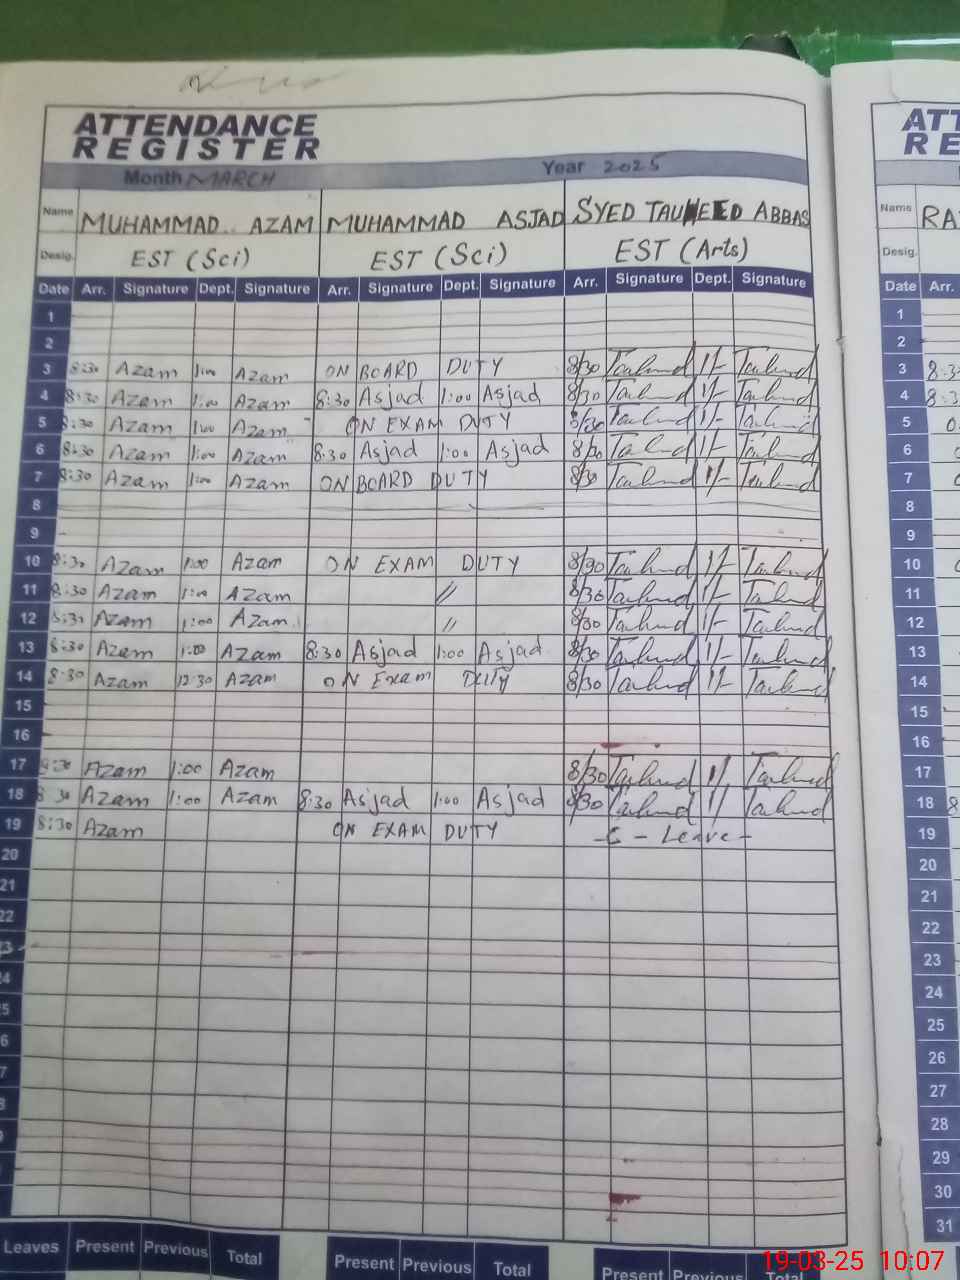 ATTENDANCE
REGISTER
Month MARCH Year 2025
Name MUHAMMAD AZAM MUHAMMAD ASJAD SYED TAUHEED ABBAS
Desig. EST (Sci) EST (Sci) EST (Arts)
Date Arr. Signature Dept. Signature Arr. Signature Dept. Signature Arr. Signature Dept. Signature
1
2
3 8:30 Azam 1:00 Azam ON BOARD DUTY 8/30 1/-
4 8:30 Azam 1:00 Azam 8:30 Asjad 1:00 Asjad 8/30 1/-
5 8:30 Azam 1:00 Azam ON EXAM DUTY 8/30 1/-
6 8:30 Azam 1:00 Azam 8:30 Asjad 1:00 Asjad 8/30 1/-
7 8:30 Azam 1:00 Azam ON BOARD DUTY 8/30 1/-
8
9
10 8:30 Azam 1:00 Azam ON EXAM DUTY 8/30 1/-
11 8:30 Azam 1:00 Azam // 8/30 1/-
12 8:30 Azam 1:00 Azam // 8/30 1/-
13 8:30 Azam 1:00 Azam 8:30 Asjad 1:00 Asjad 8/30 1/-
14 8:30 Azam 12:30 Azam ON Exam DUTY 8/30 1/-
15
16
17 8:30 Azam 1:00 Azam 8/30 1/-
18 8:30 Azam 1:00 Azam 8:30 Asjad 1:00 Asjad 8/30 1/-
19 8:30 Azam ON EXAM DUTY - C - Leave -
20
21
22
23
Leaves Present Previous Total Present Previous Total Present Previous Total
ATT
RE
Name RA
Desig.
Date Arr.
1
2
3
4
5
6
7
8
9
10
11
12
13
14
15
16
17
18
19
20
21
22
23
24
25
26
27
28
29
30
31
19-03-25 10:07